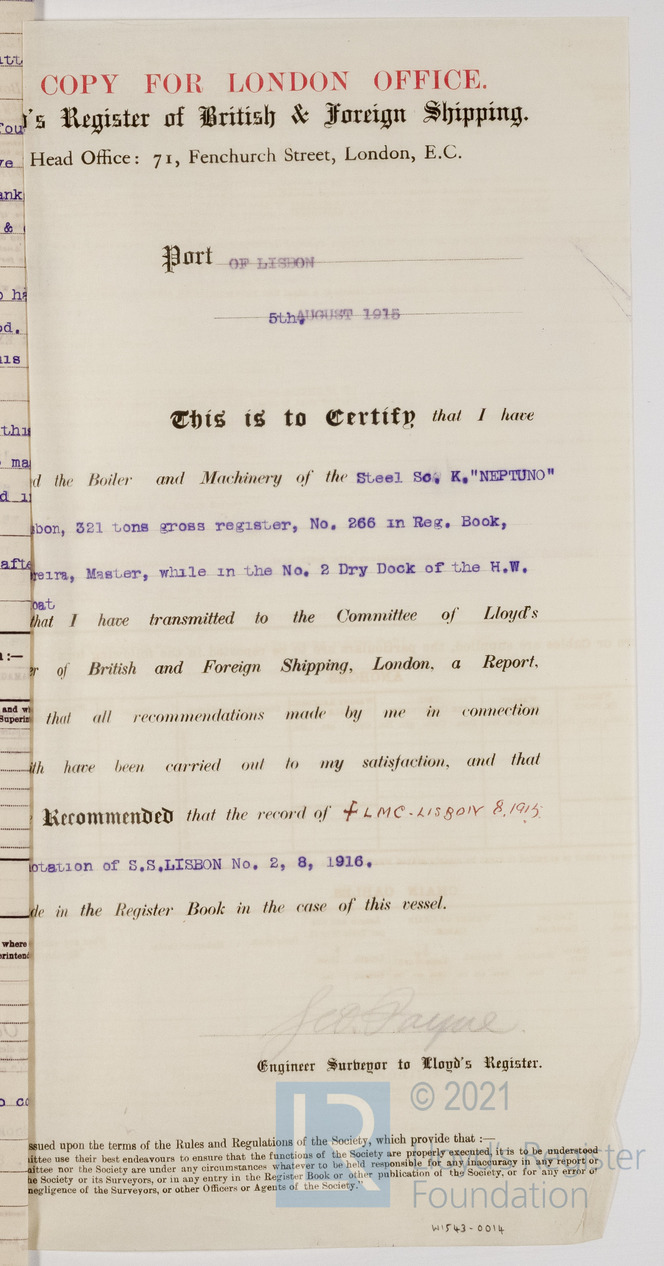 COPY FOR LONDON OFFICE.
's Register of British & Foreign Shipping.
Head Office: 71, Fenchurch Street, London, E.C.
Port OF LISBON
5th, AUGUST 1915
This is to Certify that I have
d the Boiler and Machinery of the Steel Sc. K. "NEPTUNO"
sbon, 321 tons gross register, No. 266 in Reg. Book,
reira, Master, while in the No. 2 Dry Dock of the H.W.
oat
that I have transmitted to the Committee of Lloyd's
r of British and Foreign Shipping, London, a Report,
that all recommendations made by me in connection
ith have been carried out to my satisfaction, and that
Recommended that the record of + LMC - LISBON 8, 1915
otation of S.S. LISBON No. 2, 8, 1916.
de in the Register Book in the case of this vessel.
Geo. Payne
Engineer Surveyor to Lloyd's Register.
ssued upon the terms of the Rules and Regulations of the Society, which provide that :—
ittee use their best endeavours to ensure that the functions of the Society are properly executed, it is to be understood
ittee nor the Society are under any circumstances whatever to be held responsible for any inaccuracy in any report or
he Society or its Surveyors, or in any entry in the Register Book or other publication of the Society, or for any error of
negligence of the Surveyors, or other Officers or Agents of the Society."
© 2021
Lloyd's Register
Foundation
W1543-0014